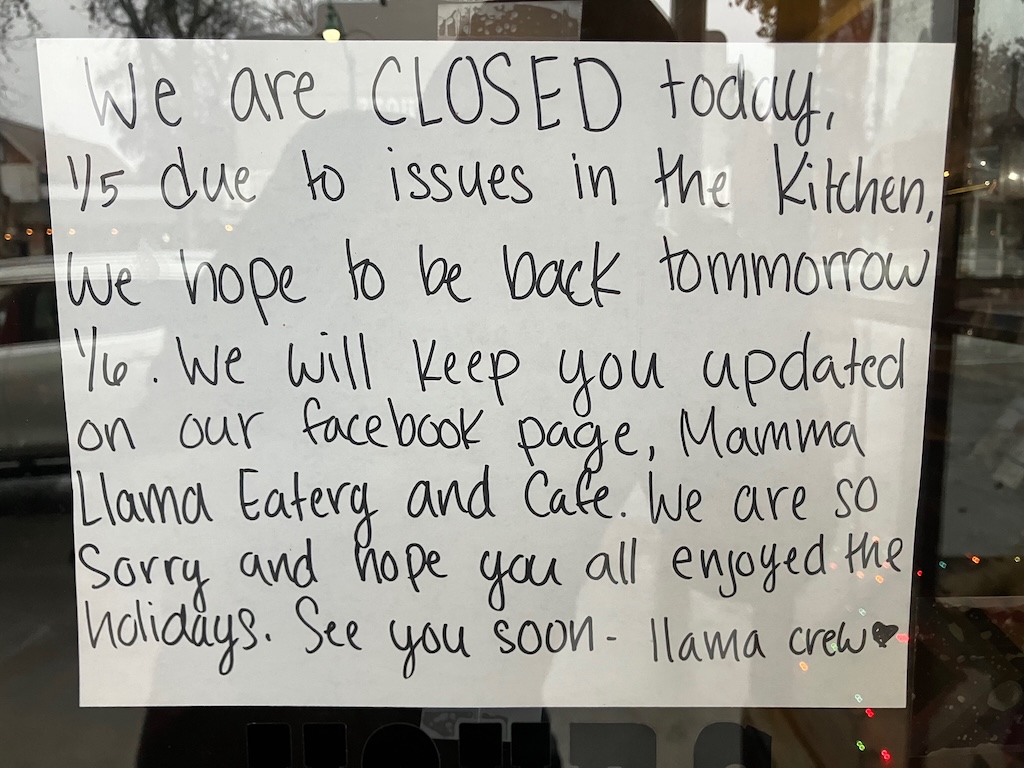 We are CLOSED today,
1/5 due to issues in the Kitchen,
We hope to be back tommorrow
1/6. We will keep you updated
on our facebook page, Mamma
Llama Eatery and Cafe. We are so
Sorry and hope you all enjoyed the
holidays. See you soon- llama crew♥